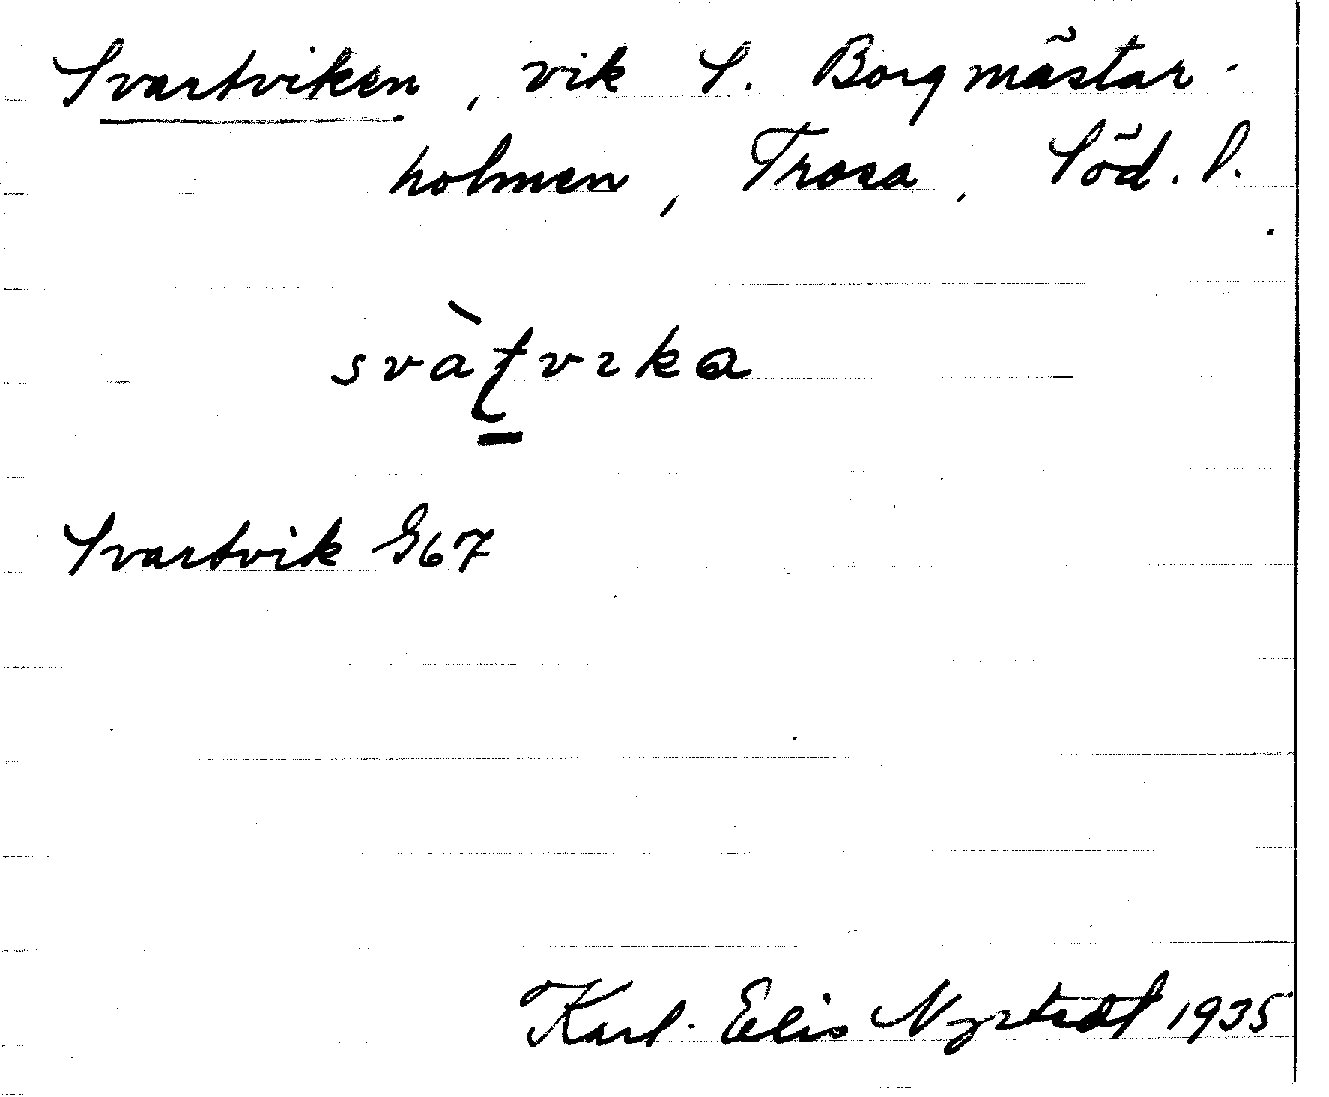 Svartviken, vik S. Borgmästar-
holmen, Trosa, Söd. l.
svàʈvɩka
Svartvik G67
Karl-Elis Nyrstedt 1935